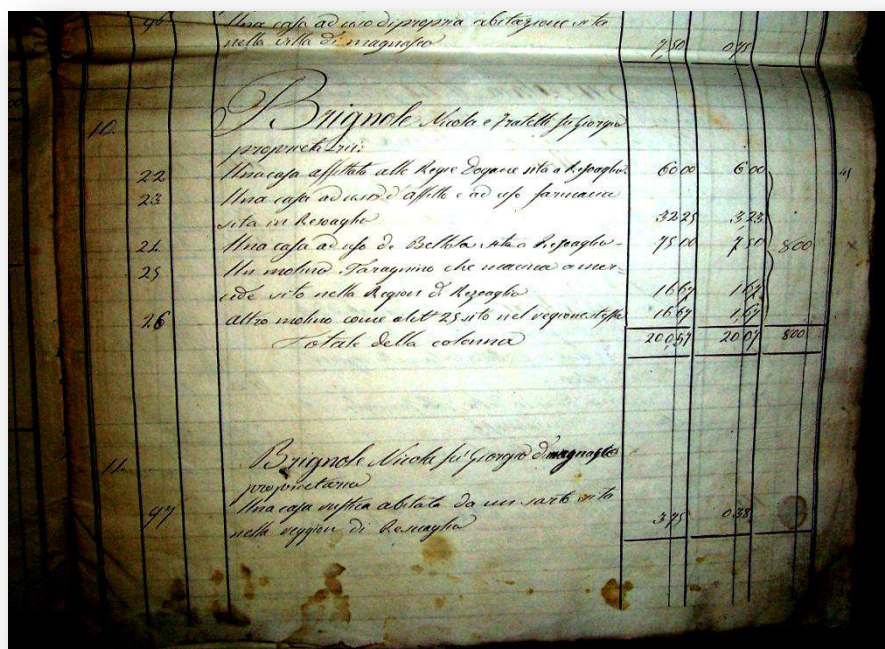 96 Una casa ad uso di propria abitazione sita
nella villa di magnasco 7,50 0,75
10 Brignole Nicola e fratelli fu Giorgio
proprietarii
22 Una casa affittata alle Regie Dogane sita a Rezoaglio 60 00 6 00 41
23 Una casa ad uso d'affitto e ad uso farmacia
sita in Rezoaglio 32 25 3,23
24 Una casa ad uso di sita a Rezoaglio 75 00 7 50 800
25 Un molino che macina a mer-
cede sito nella Region di Rezoaglio 16 67 1 67
26 Altro molino come al N° 25 sito nel regione stessa 16 67 1,67
Totale della colonna 200,57 20 07 800
11 Brignole Nicola fu Giorgio di magnasco
proprietario
97 Una casa rustica abitata da un sarto sita
nella reggion di Rezoaglio 3 75 0 38